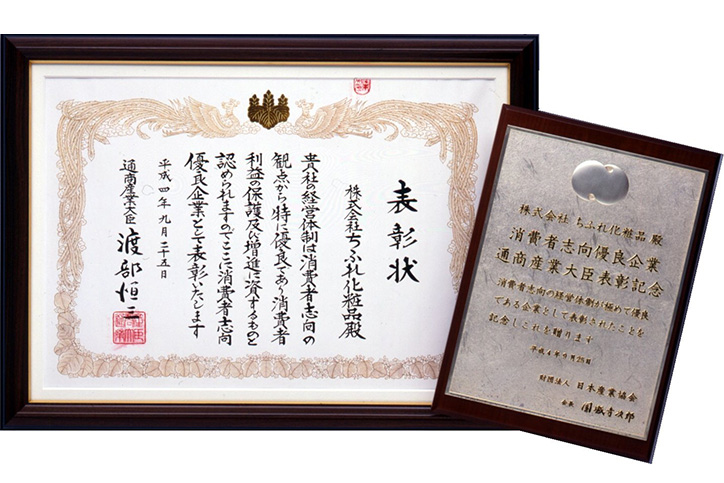 表彰状
株式会社ちふれ化粧品殿
貴社の経営体制は消費者志向の
観点から特に優良であり消費者
利益の保護及び増進に資するものと
認められますのでここに消費者志向
優良企業として表彰いたします
平成四年九月二十五日
通商産業大臣 渡部恒三
株式会社 ちふれ化粧品 殿
消費者志向優良企業
通商産業大臣表彰記念
消費者志向の経営体制が極めて優良
である企業として表彰されたことを
記念しこれを贈ります
平成4年9月25日
財団法人 日本産業協会
会長